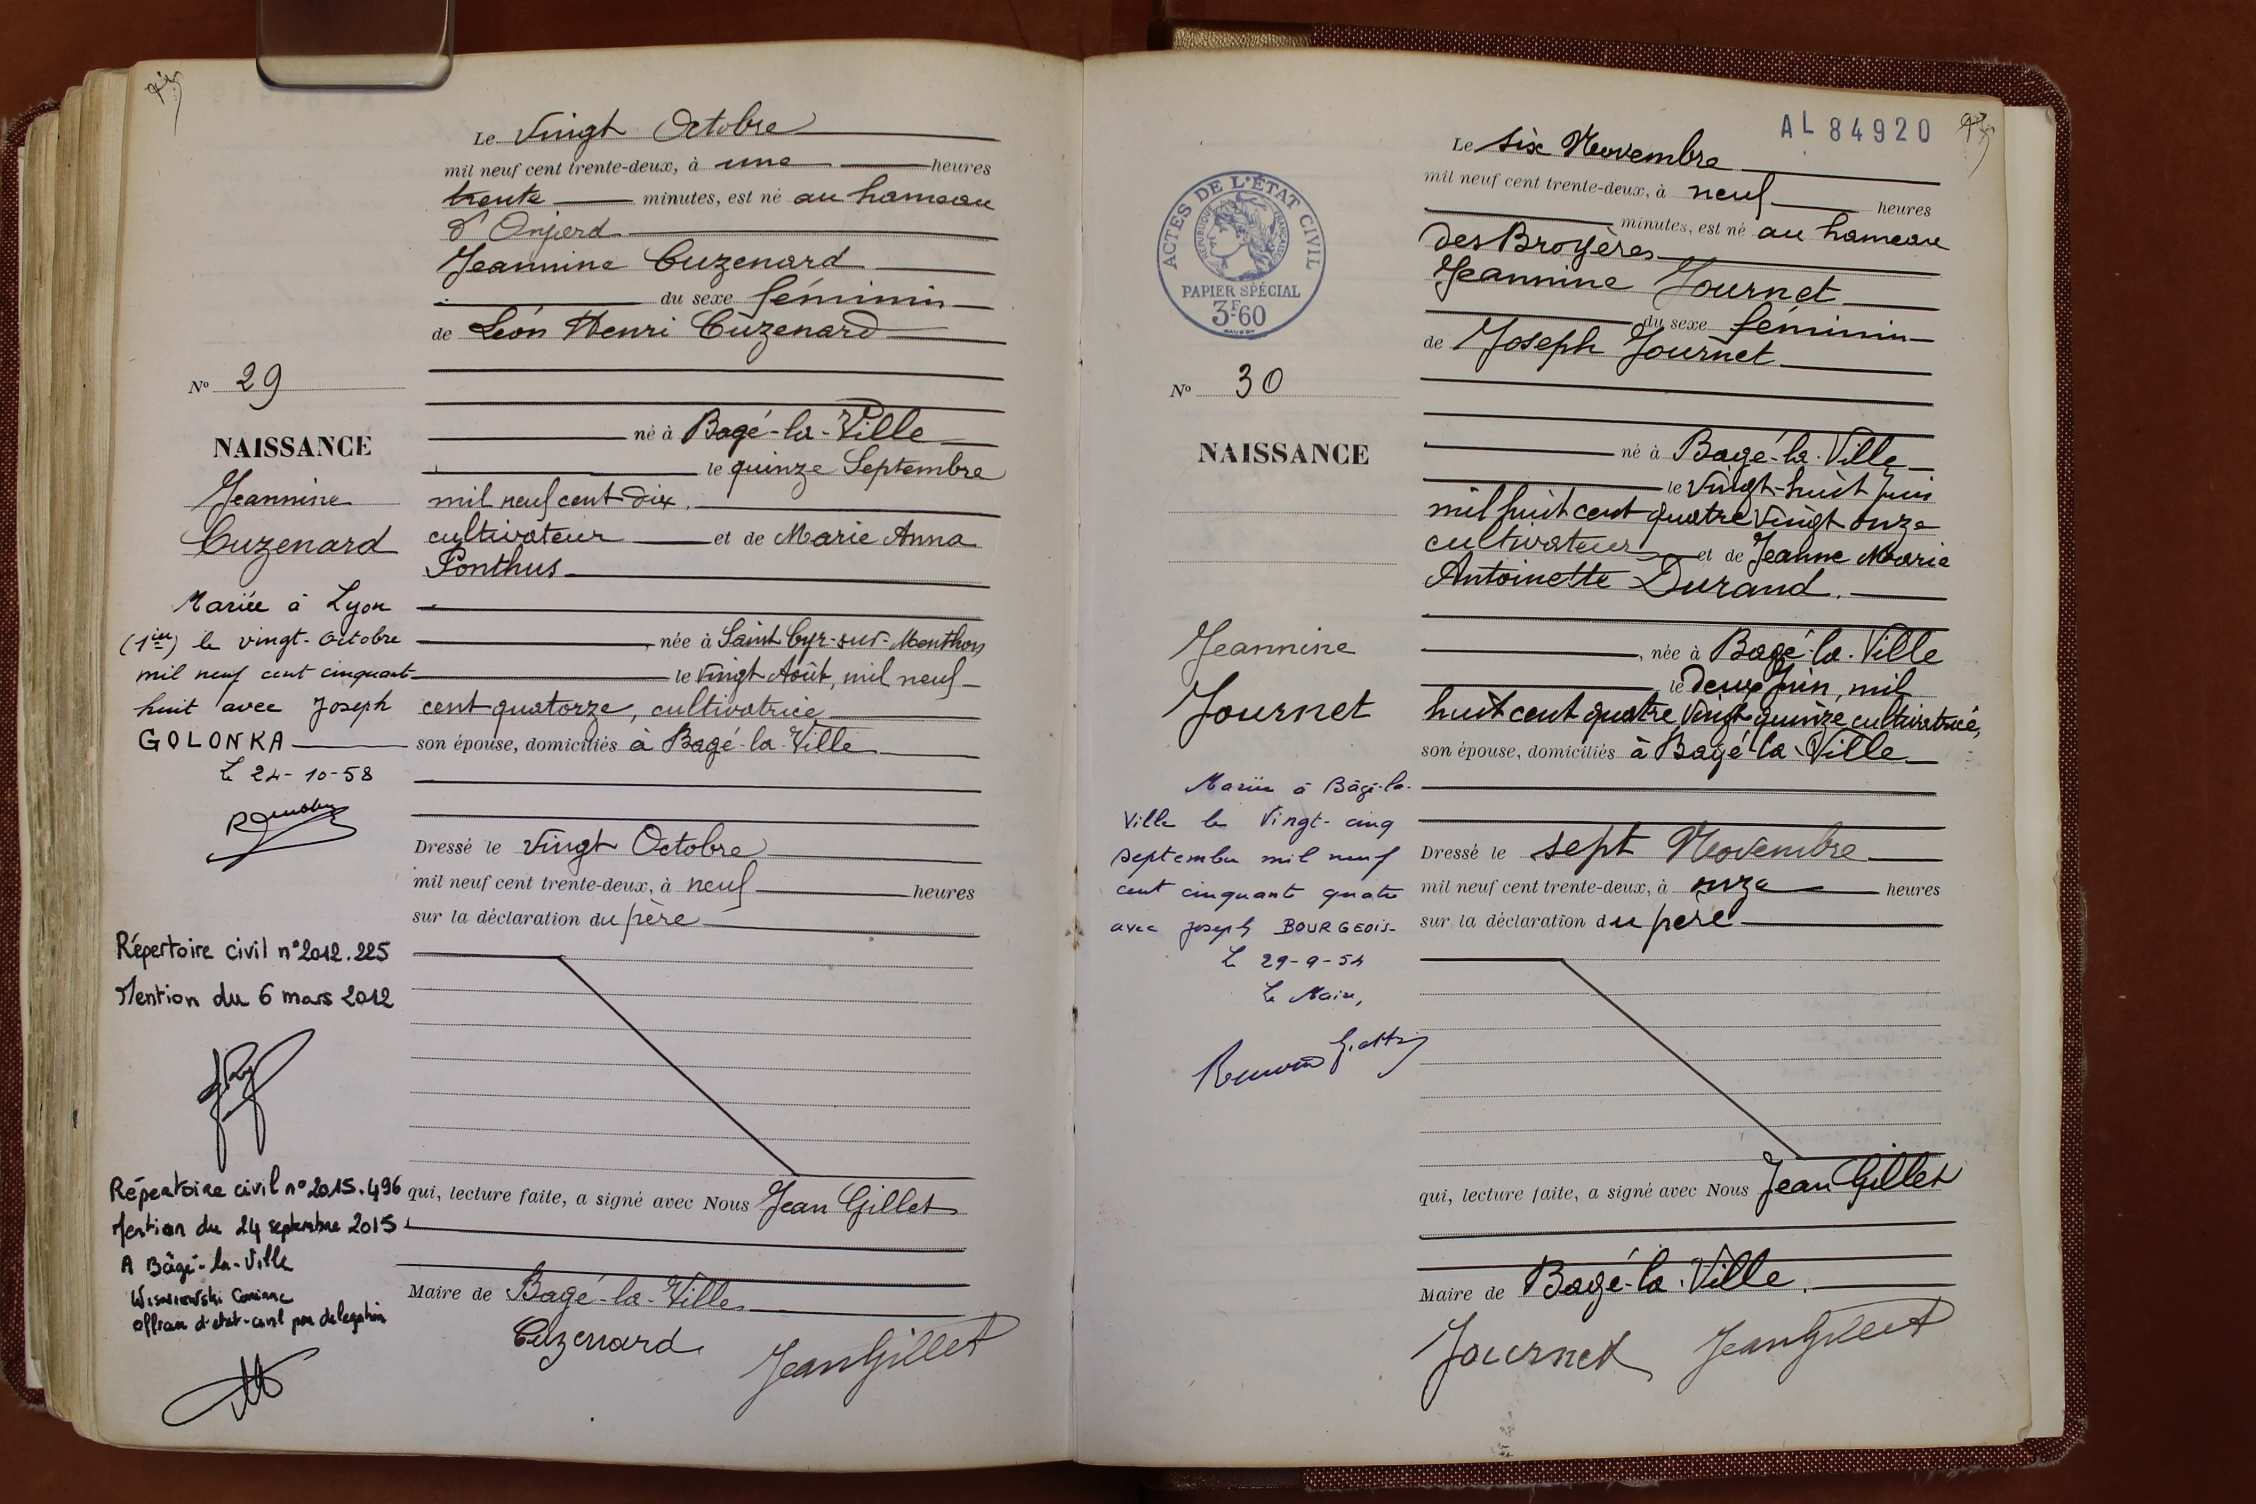 Le vingt Octobre
mil neuf cent trente-deux, à une heures
trente minutes, est né au hameau
d'Onjard
Jeannine Cuzenard
du sexe féminin
de Léon Henri Cuzenard
né à Bagé-la-Ville
le quinze Septembre
mil neuf cent dix.
cultivateur et de Marie Anna
Ponthus
née à Saint Cyr-sur-Menthon
le vingt Août, mil neuf
cent quatorze, cultivatrice
son épouse, domiciliés à Bagé-la-Ville
Dressé le vingt Octobre
mil neuf cent trente-deux, à neuf heures
sur la déclaration du père
qui, lecture faite, a signé avec Nous Jean Gillet
Maire de Bagé-la-Ville
Cuzenard JeanGillet
No 29
NAISSANCE
Jeannine
Cuzenard
Mariée à Lyon
(1er) le vingt-octobre
mil neuf cent cinquant
huit avec Joseph
GOLONKA
Le 24-10-58
Répertoire civil n°2012.225
Mention du 6 mars 2012
Répertoire civil n°2015.496
Mention du 24 septembre 2015
A Bâgé-la-Ville
Wisniewski
Officier d'etat-civil par delegation
AL 84920
Le six Novembre
mil neuf cent trente-deux, à neuf heures
minutes, est né au hameau
des Broyères
Jeannine Journet
du sexe féminin
de Joseph Journet
né à Bagé-la-Ville
le vingt-huit juin
mil huit cent quatre vingt onze
cultivateur et de Jeanne Marie
Antoinette Durand.
née à Bagé-la-Ville
le deux Juin, mil
huit cent quatre vingt quinze cultivatrice,
son épouse, domiciliés à Bagé-la-Ville
Dressé le sept Novembre
mil neuf cent trente-deux, à onze heures
sur la déclaration du père
qui, lecture faite, a signé avec Nous Jean Gillet
Maire de Bagé-la-Ville.
Journet JeanGillet
ACTES DE L'ÉTAT CIVIL
RÉPUBLIQUE FRANÇAISE
PAPIER SPÉCIAL
3F60
No 30
NAISSANCE
Jeannine
Journet
Mariée à Bâgé-la-
Ville le Vingt-cinq
septembre mil neuf
cent cinquante quatre
avec Joseph BOURGEOIS-
Le 29-9-54
Le Maire,